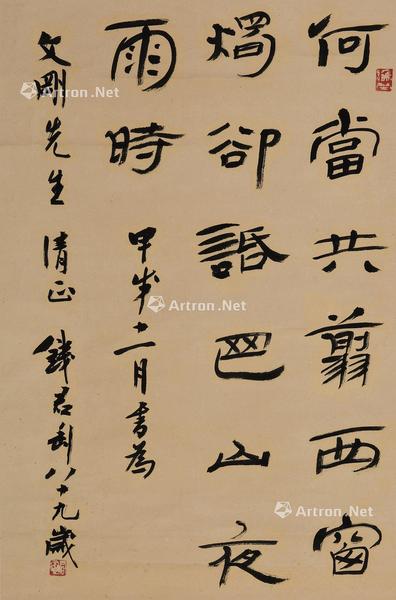 何當共翦西窗
燭卻話巴山夜
雨時
甲戌十一月書為
文剛先生 清正 錢君匋八十九歲
Artron.Net
Artron.Net
Artron.Net
Artron.Net
Artron.Net